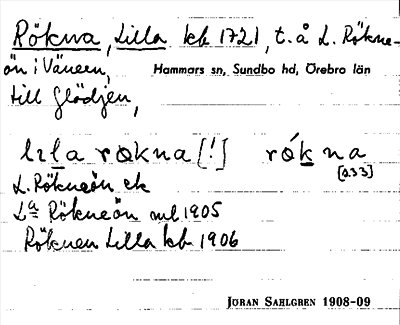 Rökna, Lilla kb 1721, t. å L. Rökne-
ön i Vänern, Hammars sn, Sundbo hd, Örebro län
till Glädjen,
lıla rokna [!] rókna
[033]
L. Rökneön ek
La Rökneön ml 1905
Röknen Lilla kb 1906
JÖRAN SAHLGREN 1908-09